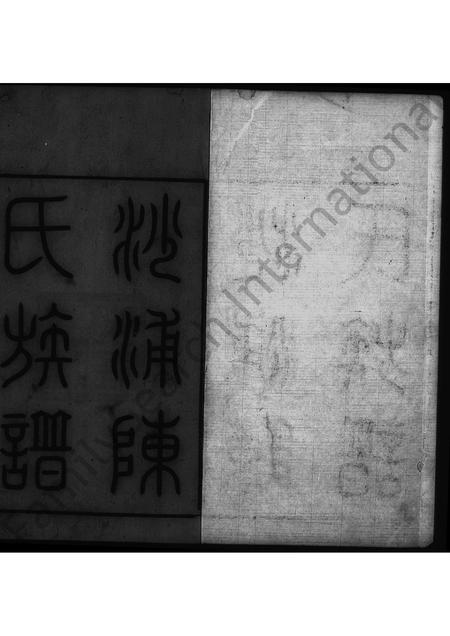 沙浦陳
氏族譜
FamilySearch International